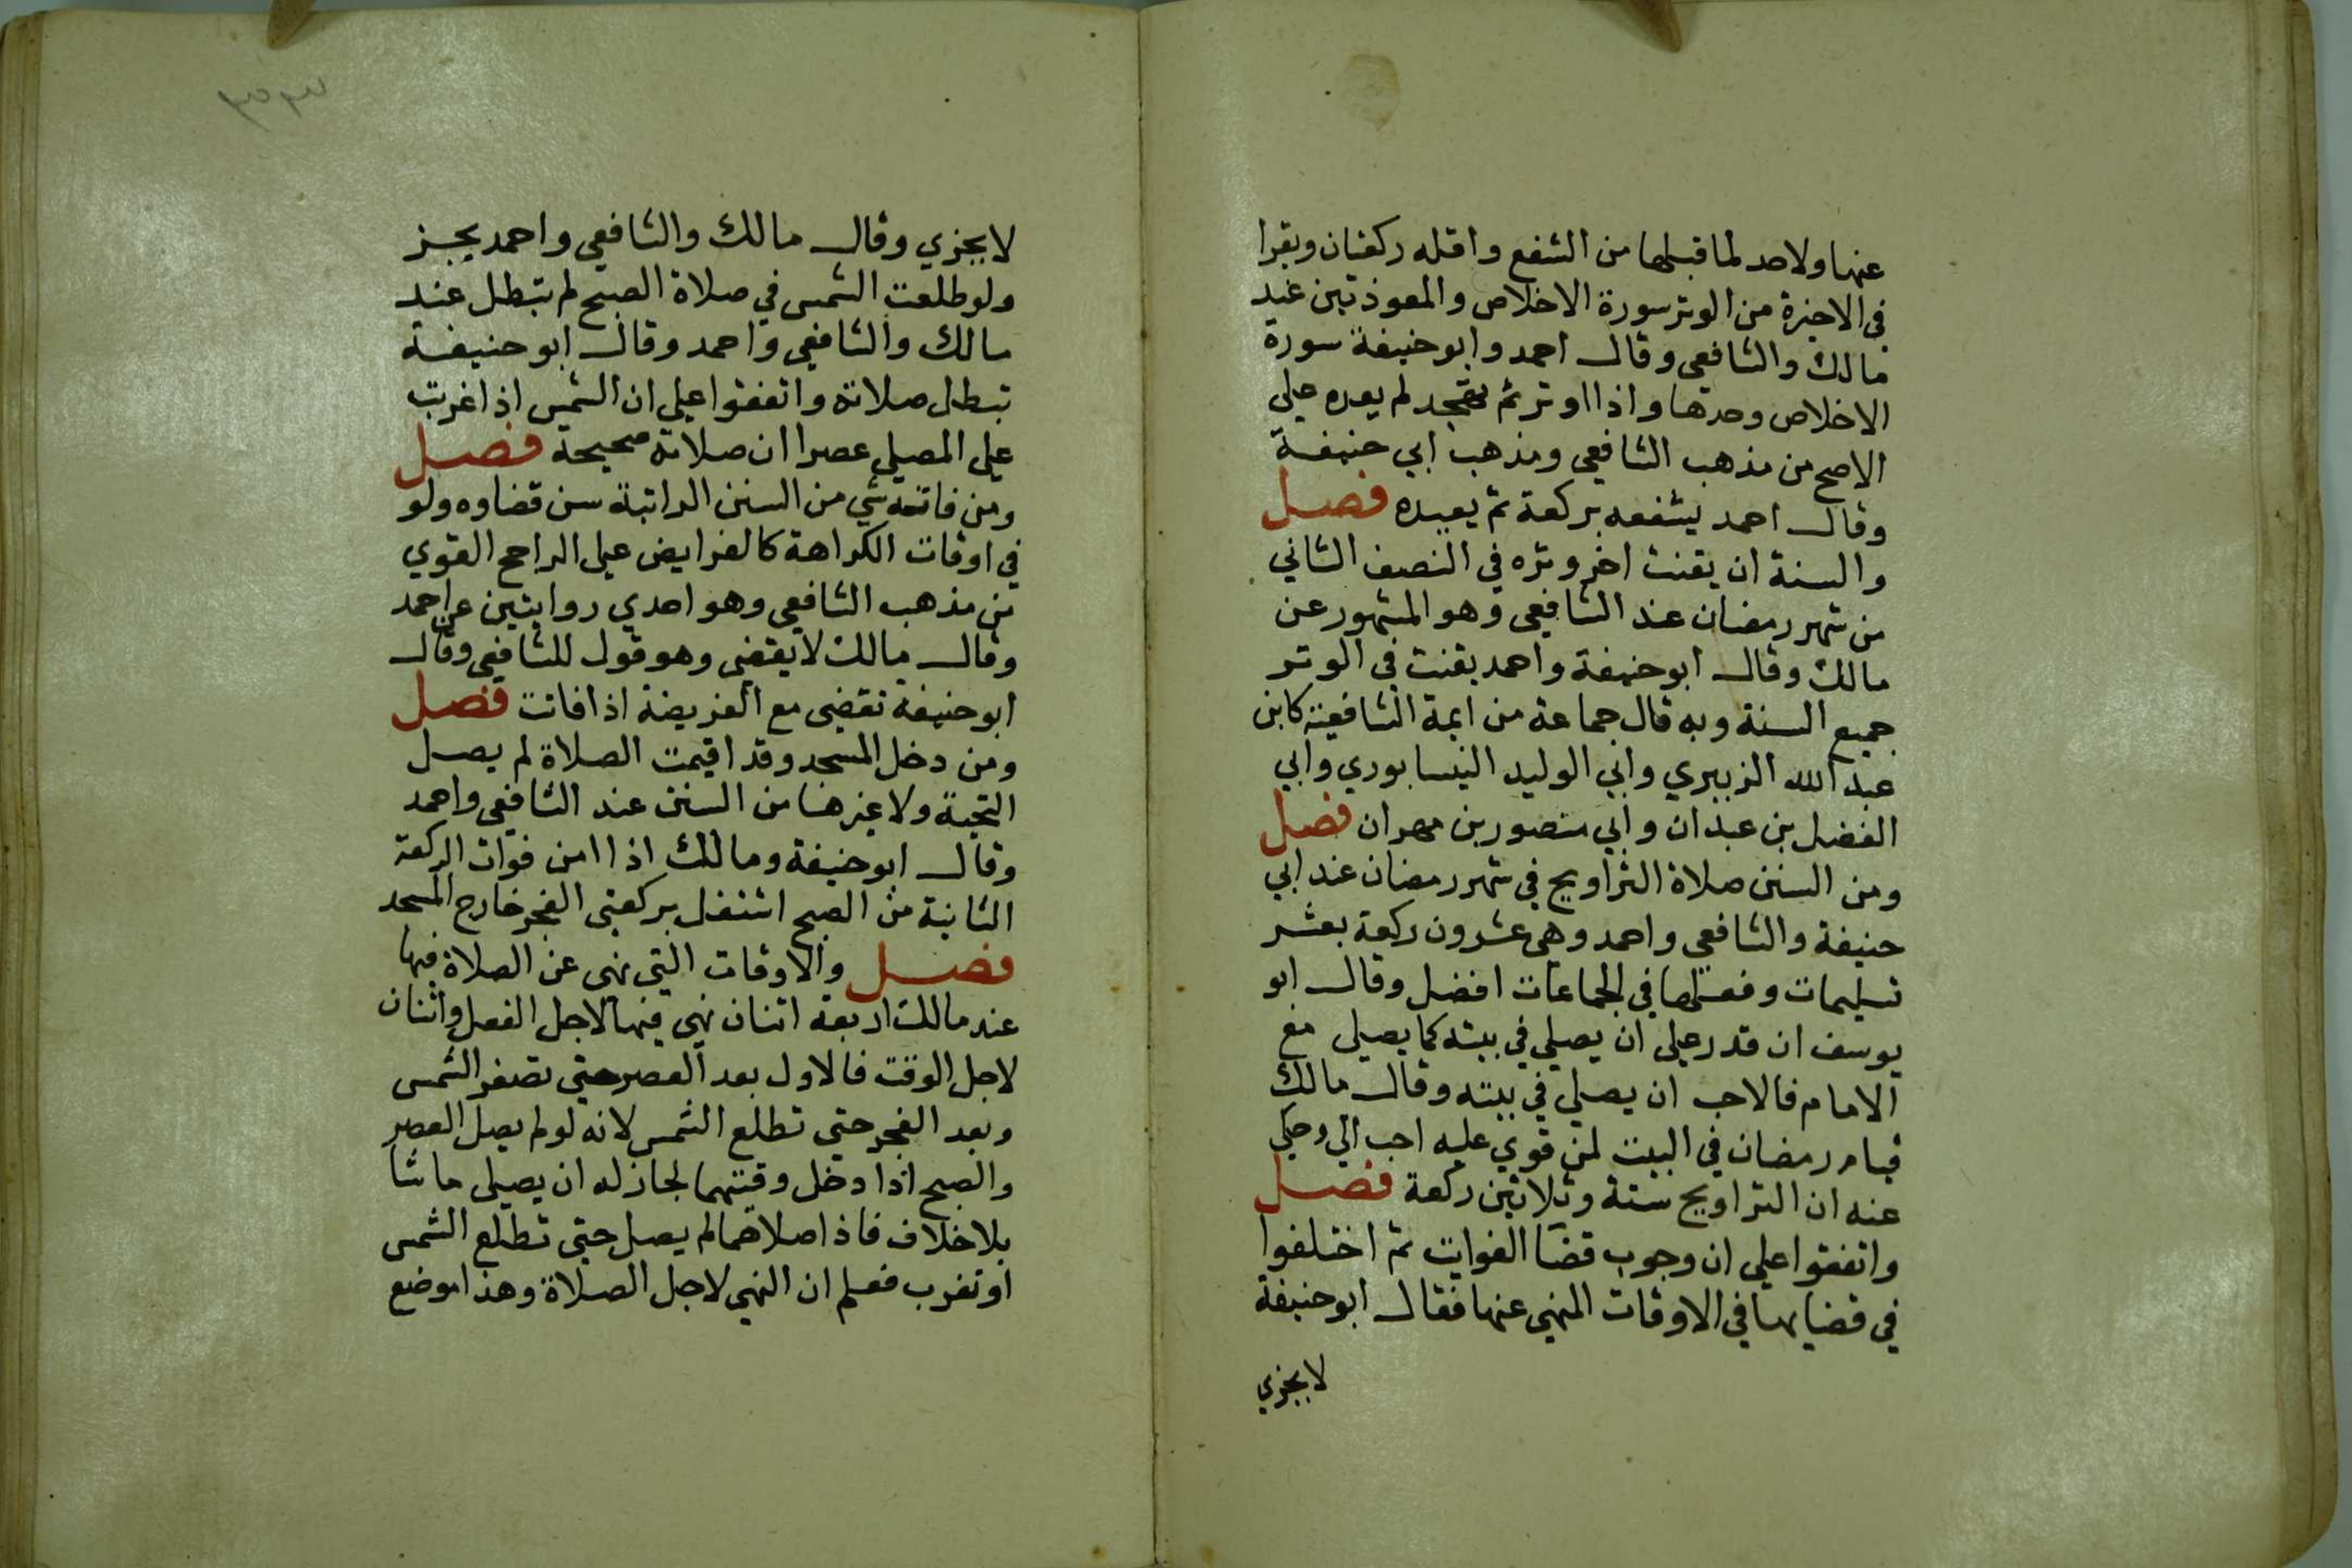 عنها ولا حد لما قبلها من الشفع واقله ركعتان ويقرا
في الاخيرة من الوتر سورة الاخلاص والمعوذتين عند
مالك والشافعي وقال احمد وابو حنيفة سورة
الاخلاص وحدها واذا اوتر ثم تهجد لم يعده علي
الاصح من مذهب الشافعي ومذهب ابي حنيفة
وقال احمد يشفعه بركعة ثم يعيده فصل
والسنة ان يقنت اخر وتره في النصف الثاني
من شهر رمضان عند الشافعي وهو المشهور عن
مالك وقال ابو حنيفة واحمد يقنت في الوتر
جميع السنة وبه قال جماعة من ايمة الشافعية كابن
عبد الله الزبيري وابي الوليد النيسابوري وابي
الفضل بن عبدان وابي منصور بن مهران فصل
ومن السنن صلاة التراويح في شهر رمضان عند ابي
حنيفة والشافعي واحمد وهي عشرون ركعة بعشر
تسليمات وفعلها في الجماعات افضل وقال ابو
يوسف ان قدر علي ان يصلي في بيته كما يصلي مع
الامام فالاحب ان يصلي في بيته وقال مالك
قيام رمضان في البيت لمن قوي عليه احب الي وحكي
عنه ان التراويح ستة وثلاثين ركعة فصل
واتفقوا علي ان وجوب قضا الفوايت ثم اختلفوا
في قضايها في الاوقات المنهي عنها فقال ابو حنيفة
لا يجزي
لا يجزي وقال مالك والشافعي واحمد يجز
ولو طلعت الشمس في صلاة الصبح لم تبطل عند
مالك والشافعي واحمد وقال ابو حنيفة
تبطل صلاته واتفقوا علي ان الشمس اذا غربت
علي المصلي عصرا ان صلاته صحيحة فصل
ومن فاته شي من السنن الراتبة سن قضاوه ولو
في اوقات الكراهة كالفرايض علي الراجح القوي
من مذهب الشافعي وهو احدي روايتين عن احمد
وقال مالك لا يقضي وهو قول للشافعي وقال
ابو حنيفة تقضي مع الفريضة اذا فاتت فصل
ومن دخل المسجد وقد اقيمت الصلاة لم يصل
التحية ولا غيرها من السنن عند الشافعي واحمد
وقال ابو حنيفة ومالك اذا امن فوات الركعة
الثانية من الصبح اشتغل بركعتي الفجر خارج المسجد
فصل والاوقات التي نهي عن الصلاة فيها
عند مالك اربعة اثنان نهي فيها لاجل الفعل واثنان
لاجل الوقت فالاول بعد العصر حتي تصفر الشمس
وبعد الفجر حتي تطلع الشمس لانه لو لم يصل العصر
والصبح اذا دخل وقتهما لجاز له ان يصلي ما شا
بلا خلاف فاذا صلاهما لم يصل حتي تطلع الشمس
او تغرب فعلم ان النهي لاجل الصلاة وهذا موضع